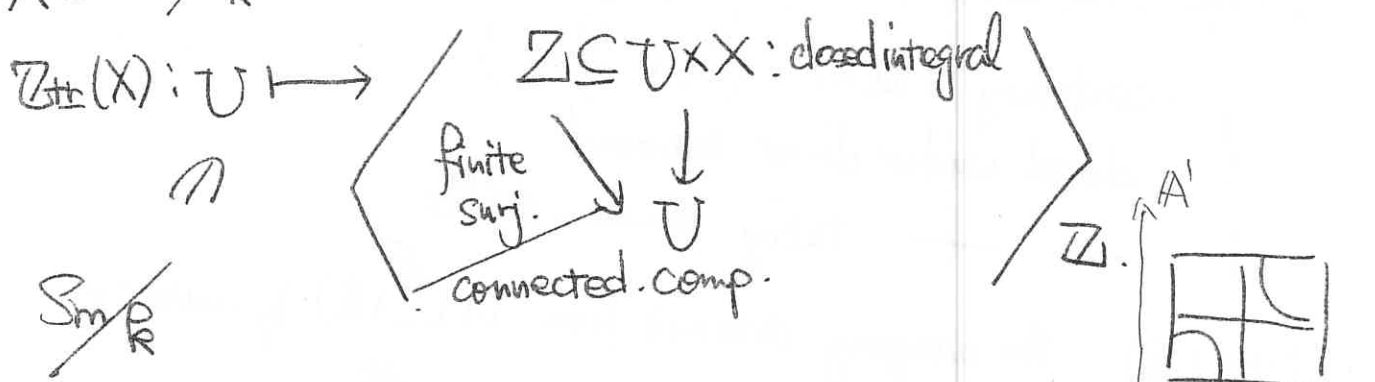 ℤtr(X) : U ↦ ⟨ Z ⊆ U×X : closed integral ⟩ ℤ.
finite
surj.
U
connected. comp.
Sm/k
A¹